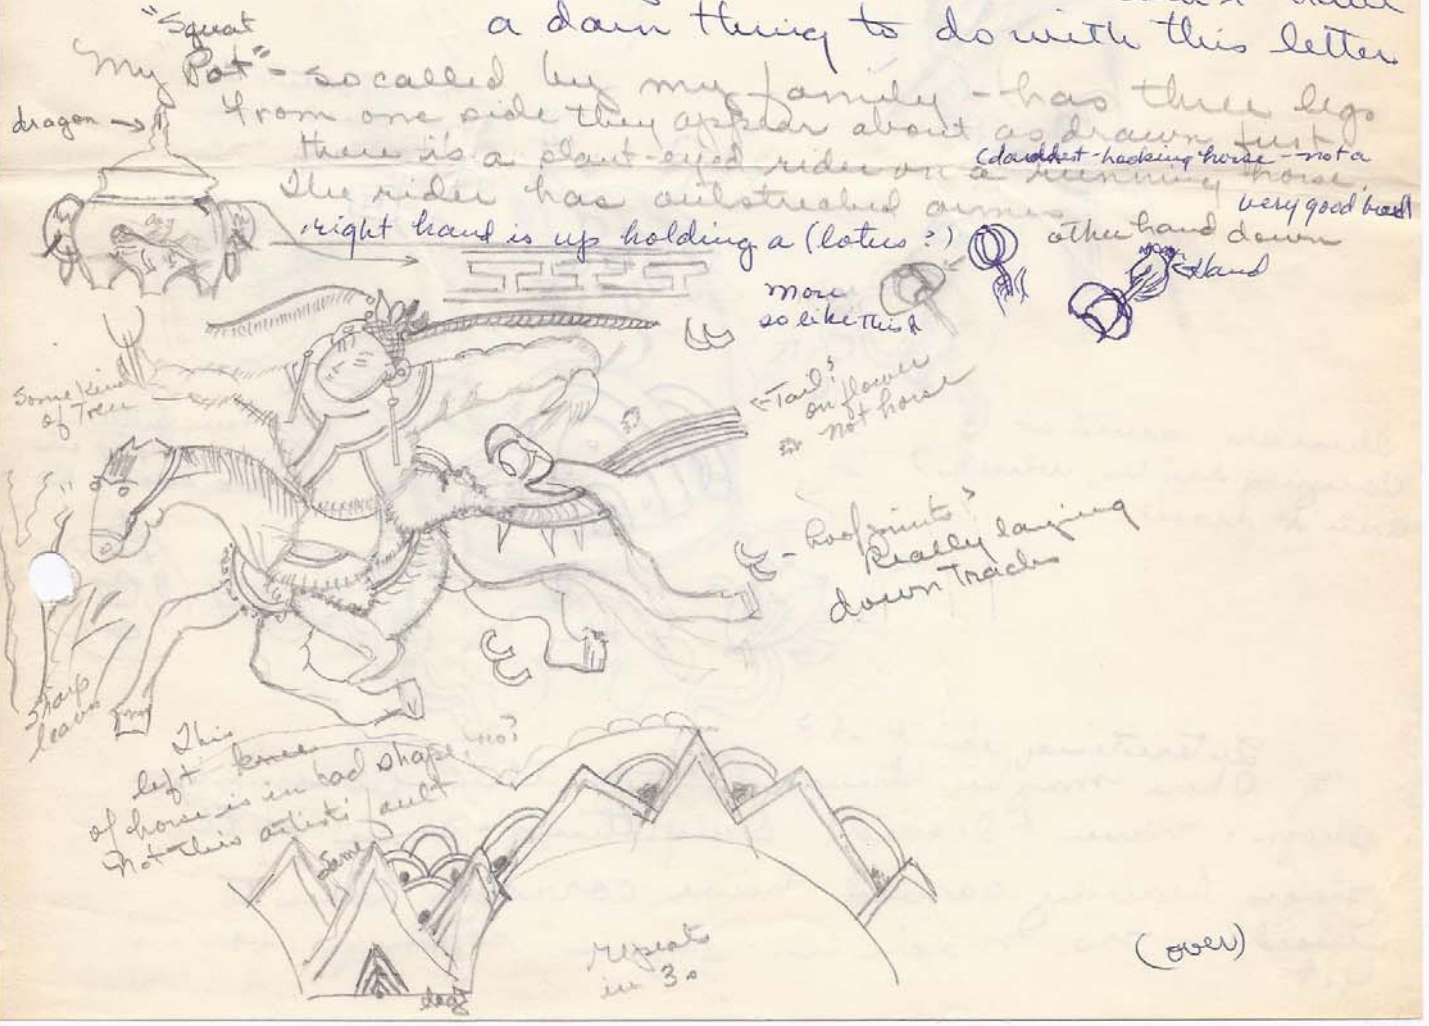 a darn thing to do with this letter
"Squat
My Pot" - so called by my family - has three legs
dragon →
from one side they appear about as drawn just
there is a slant-eyed rider on a running horse.
(darndest-looking horse - not a
very good breed
The rider has outstreched arms
right hand is up holding a (lotus?)
other hand down
Hand
more
so like this
some kind
of Tree
←Tail?
on flower
not horse
- hoofprints?
Really laying
down Tracks
Sharp
leaves
This
left knee
of horse is in bad shape, no?
Not this artist's fault
Same
repeats
in 3s
leg
(over)